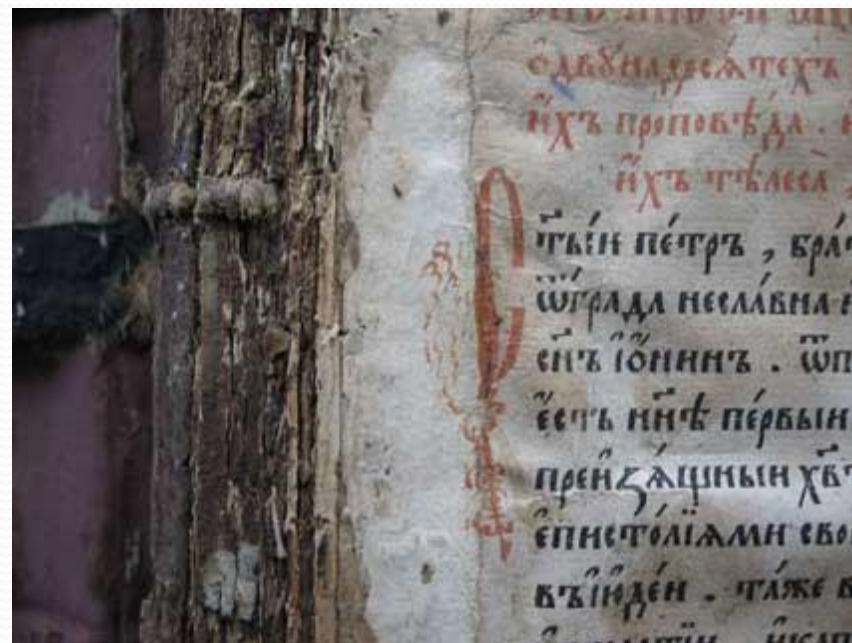 ѻ҆двꙋна́десѧтехъ
и҆́хъ проповѣ́да . и҆
и҆́хъ тѣлеса̀ ,
С
т҃ы́и пе́тръ , бра́т
ѿгра́да несла́вна
сн҃ъ і҆ѻ́нинъ . ѿп
є҆́сть нн҃ѣ пе́рвыи
преи҆зѧ́щныи хв҃
є҆писто́лїѧми сво
въі҆ю҆де́и . та́же в